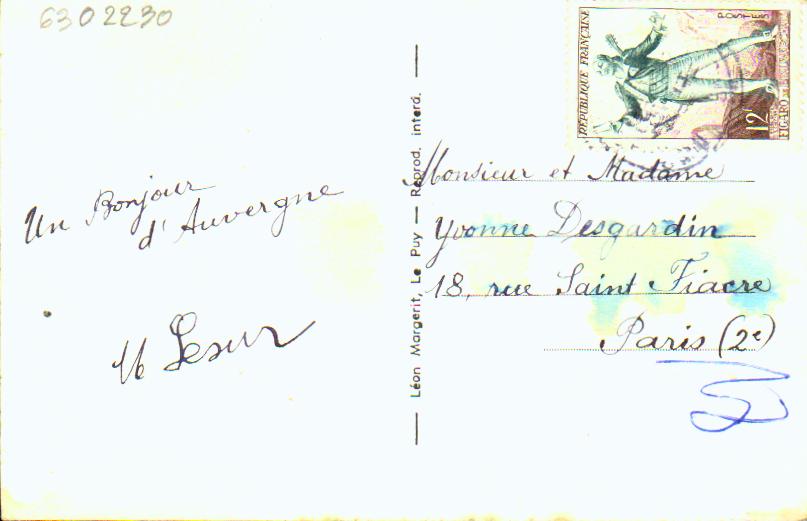 6302230
RÉPUBLIQUE FRANÇAISE
POSTES
12F
FIGARO
Un Bonjour
d'Auvergne
Léon Margerit, Le Puy — Reprod. interd.
Monsieur et Madame
Yvonne Desgardin
18, rue Saint Fiacre
Paris (2e)